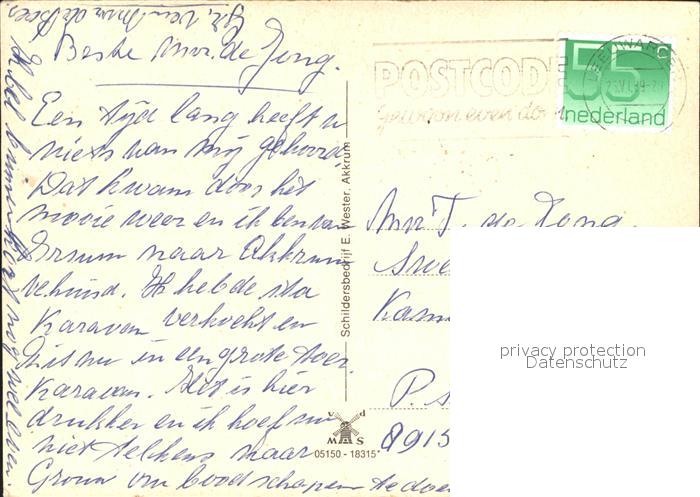 Beste Mvr. de Jong.
Een tijd lang heeft u
niets van mij gehoord.
Dat kwam door het
mooie weer en ik ben van
Irnsum naar Akkrum
verhuisd. Ik heb de sta
Karavan verkocht en
zit nu in een grote toer
Karavan. Het is hier
drukker en ik hoef nu
niet telkens naar
Grouw om boodschapen te doen
Schildersbedrijf E. Wester, Akkrum
v d
MAS
05150 - 18315*
POSTCODE
gewoon even do
LEEUWARDEN
55 C
nederland
Mvr T. de Jong.
Kam
P.
8915
privacy protection
Datenschutz